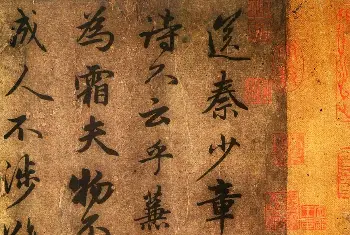 送秦少章
诗不云乎蒹
為霜夫物不
成人不涉